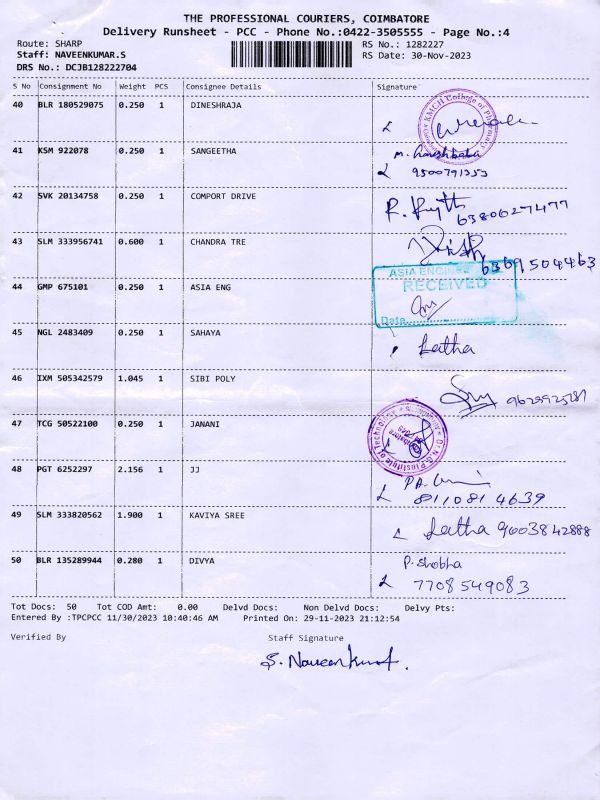 THE PROFESSIONAL COURIERS, COIMBATORE
Delivery Runsheet - PCC - Phone No.:0422-3505555 - Page No.:4
Route: SHARP RS No.: 1282227
Staff: NAVEENKUMAR.S RS Date: 30-Nov-2023
DRS No.: DCJB128222704
S No Consignment No Weight PCS Consignee Details Signature
40 BLR 180529075 0.250 1 DINESHRAJA
KMCH College of Pharmacy
41 KSM 922078 0.250 1 SANGEETHA
9500791353
42 SVK 20134758 0.250 1 COMPORT DRIVE
6380627477
43 SLM 333956741 0.600 1 CHANDRA TRE
6369504463
44 GMP 675101 0.250 1 ASIA ENG
RECEIVED
Date
45 NGL 2483409 0.250 1 SAHAYA Latha
46 IXM 505342579 1.045 1 SIBI POLY
47 TCG 50522100 0.250 1 JANANI
Institute of Technology
48 PGT 6252297 2.156 1 JJ
8110814639
49 SLM 333820562 1.900 1 KAVIYA SREE Latha 9603842888
50 BLR 135289944 0.280 1 DIVYA P. Shobha
7708549083
Tot Docs: 50 Tot COD Amt: 0.00 Delvd Docs: Non Delvd Docs: Delvy Pts:
Entered By :TPCPCC 11/30/2023 10:40:46 AM Printed On: 29-11-2023 21:12:54
Verified By Staff Signature
S. Naveenkumar.